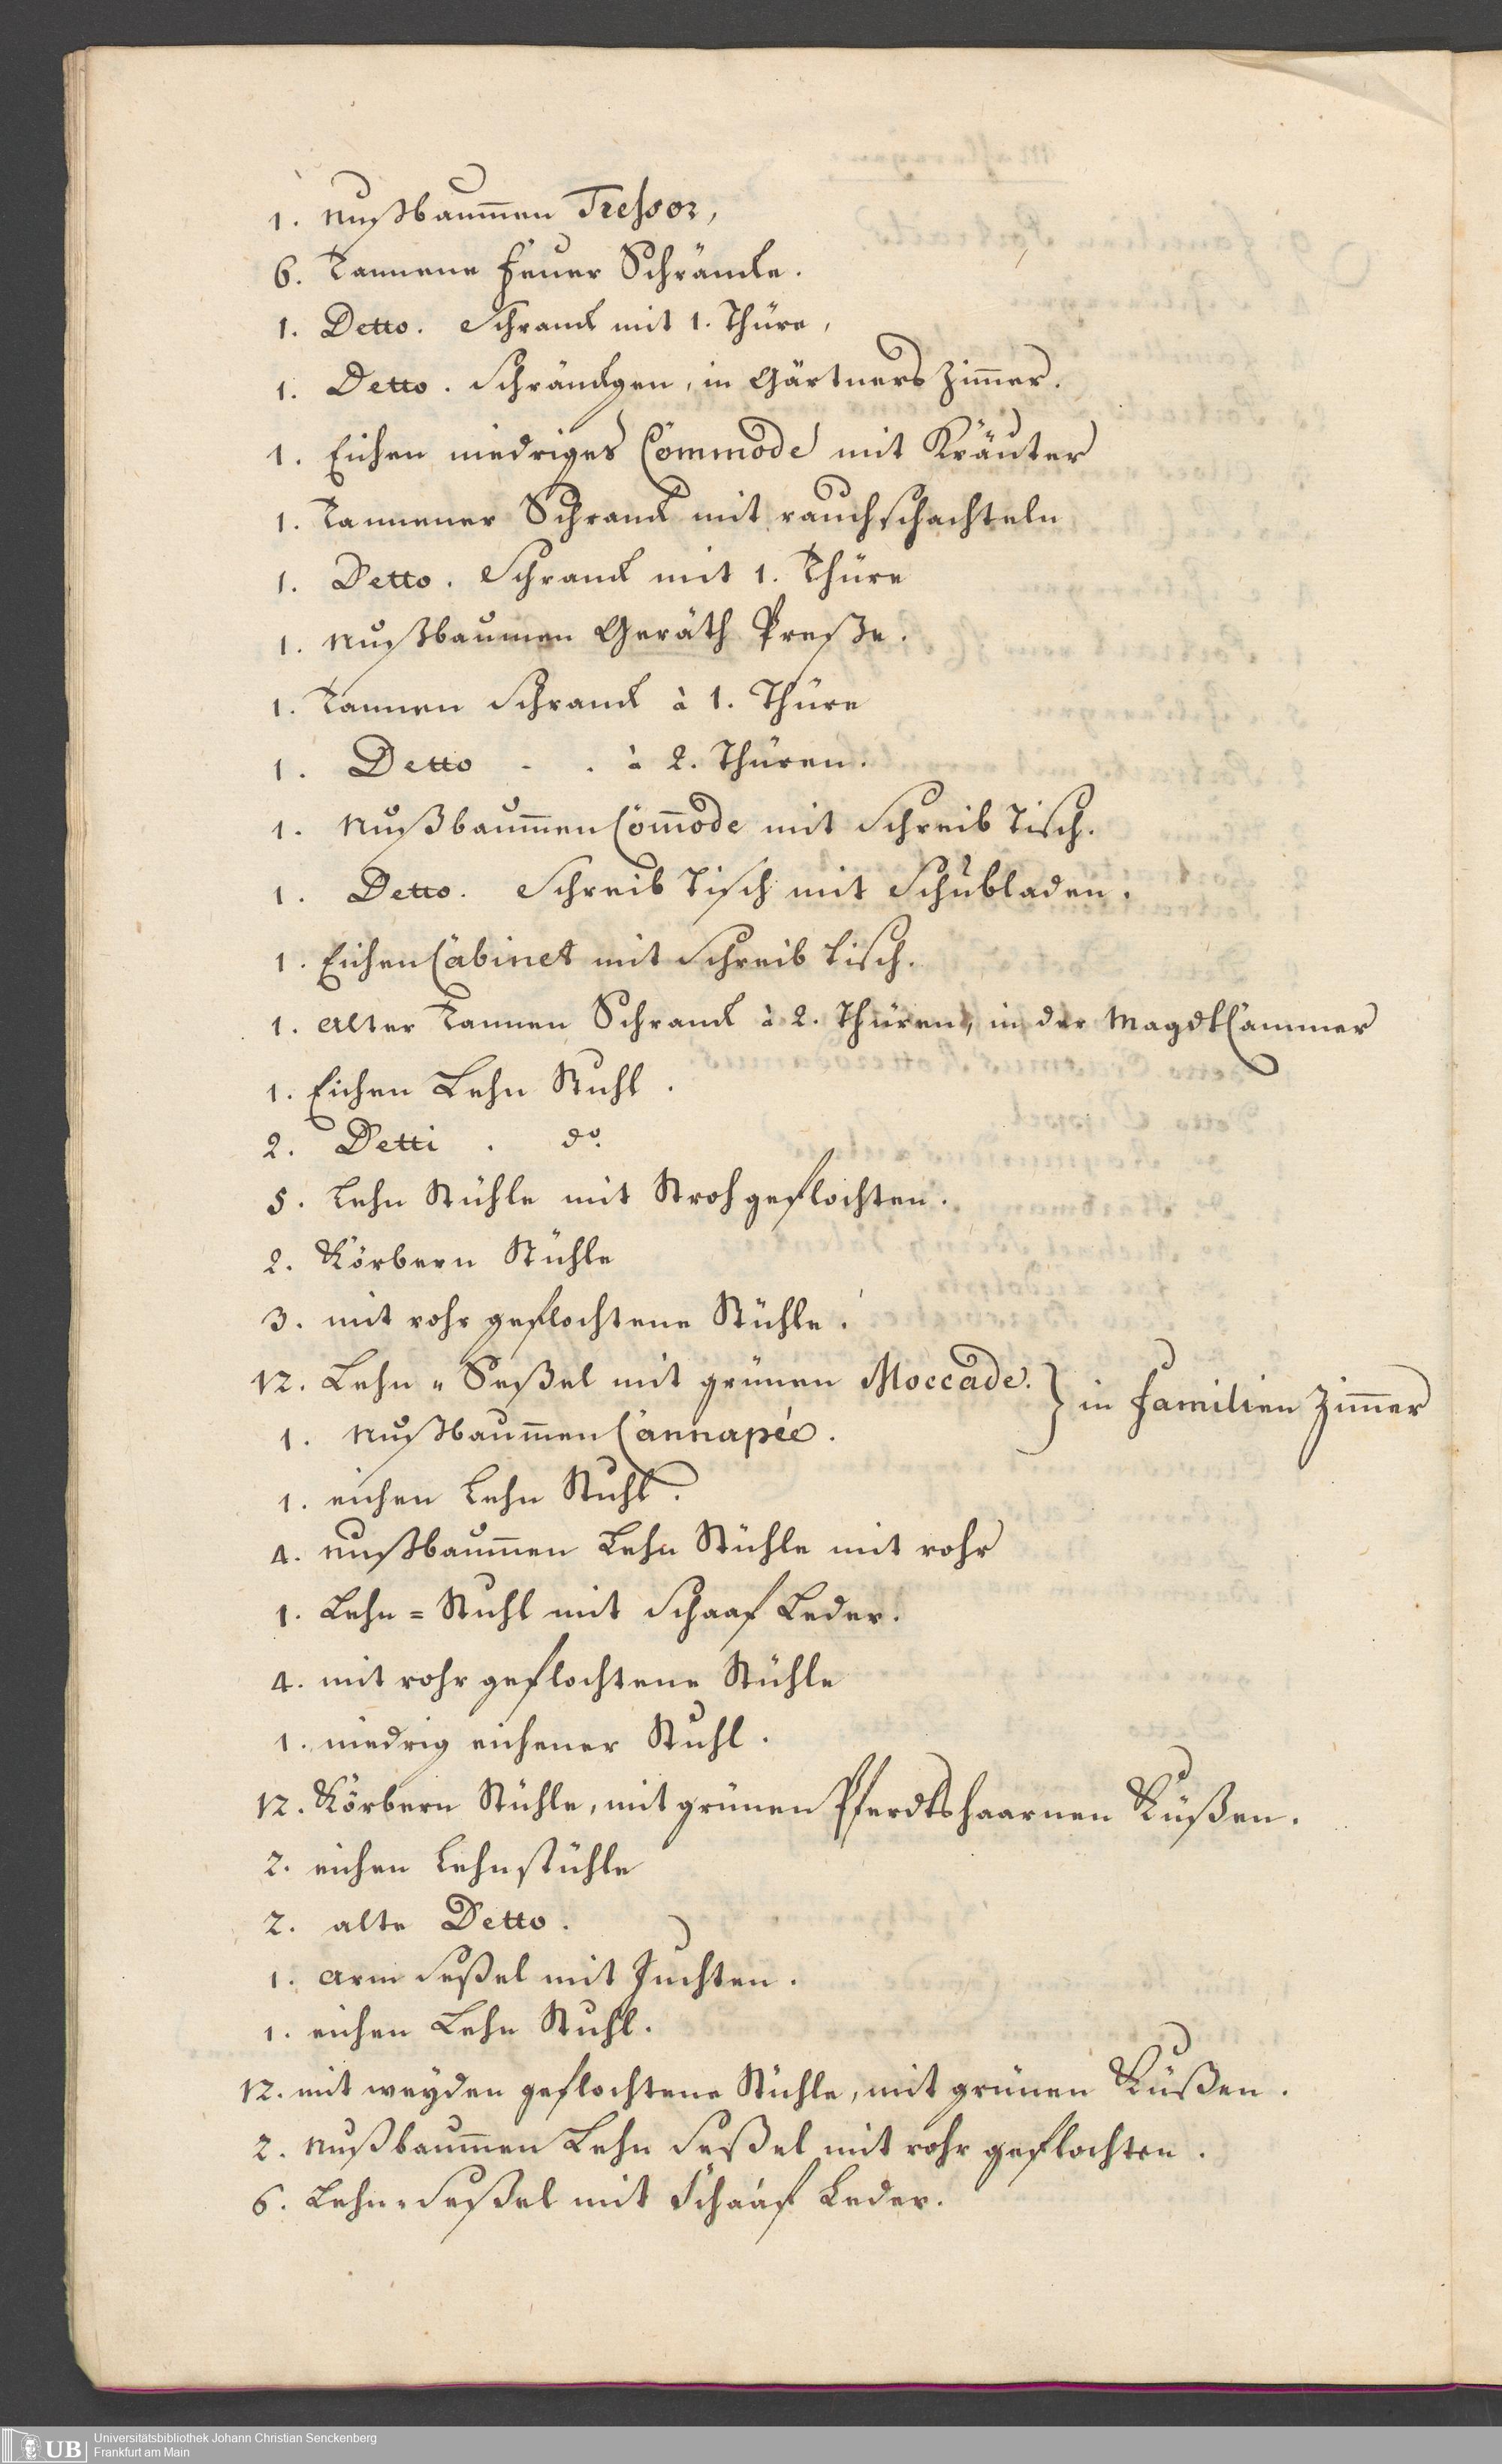 1. Nußbaum̅en Tresor,
6. Tannene Feuer Schräncke.
1. Detto. Schranck mit 1. Thüre,
1. Detto. Schränckgen, in Gärtners Zim̅er.
1. Eichen niedriges Commode mit Kräuter
1. Tannener Schranck mit rauchschachteln
1. Detto. Schranck mit 1. Thüre
1. Nußbaumen Geräth Preße.
1. Tannen Schranck à 1. Thüre
1. Detto - . à 2. Thüren.
1. Nußbaum̅en Com̅ode mit Schreib Tisch.
1. Detto. Schreib Tisch mit Schubladen.
1. Eichen Cabinet mit Schreib Tisch.
1. Alter Tannen Schranck à 2. Thüren, in der Magdt Cammer
1. Eichen Lehn Stuhl.
2. Detti . do.
5. Lehn Stühle mit Stroh geflochten.
2. Körbern Stühle
3. mit rohr geflochtene Stühle.
12. Lehn " Seßel mit grünen Moccade. } in Familien Zim̅er
1. Nußbaum̅en Cannapée.
1. eichen Lehn Stuhl.
4. nußbaum̅en Lehn Stühle mit rohr
1. Lehn = Stuhl mit Schaaf Leder.
4. mit rohr geflochtene Stühle
1. niedrig eichener Stuhl.
12. Körbern Stühle, mit grünen Pferdtshaarnen Küßen.
2. eichen Lehnstühle
2. alte Detto.
1. Arm Seßel mit Juchten.
1. eichen Lehn Stuhl.
12. mit weyden geflochtene Stühle, mit grünen Küßen.
2. Nußbaum̅en Lehn Seßel mit rohr geflochten.
6. Lehn-Seßel mit Schaaf Leder.
UB Universitätsbibliothek Johann Christian Senckenberg
Frankfurt am Main